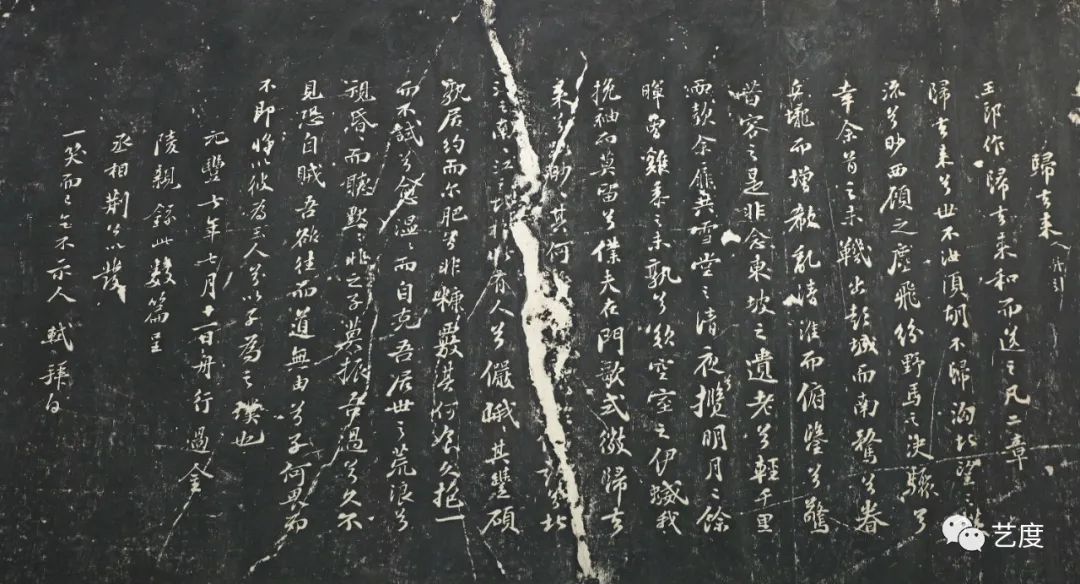 歸去來兮并引
王郎作歸去來和而送之凡二章
歸去來兮世不汝須胡不歸洶北望之橫
流兮眇西顧之塵飛紛野馬之決驟兮
幸余首之未鞿出彭城而南騖兮眷
丘壠而增欷亂清淮而俯鑒兮驚
昔容之是非念東坡之遺老兮輕千里
而款余扉共雪堂之清夜攬明月之餘
暉曾雞黍之未熟兮歎空室之伊蝛我
挽袖而莫留兮僕夫在門歌式微歸去
來兮渺其何許兮北
江之南江之北有人兮儼峨其豐碩
孰居約而尔肥兮非糠覈其何食久抱一
而不試兮愈温而自克吾居世之荒浪兮
視昏而聽默之非之子莫振吾過兮久不
見恐自賊吾欲往而道無由兮子何畏而
不即將以彼為玉人兮以子為之璞也
元豐七年七月十一日舟行過金
陵親錄此數篇呈
丞相荆公以發
一笑而已乞不示人軾拜白
艺度